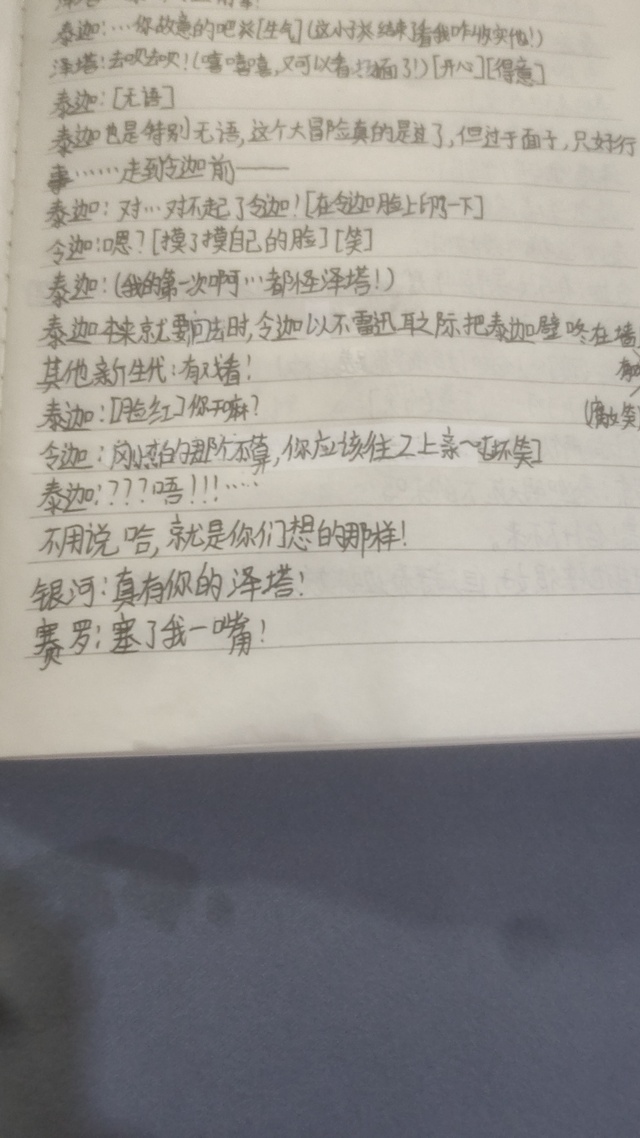 泰迦:…你故意的吧[生气](这小子结束了看我咋收实他!)
泽塔:去吹去吹!(嘻嘻嘻,又可以看场面了!)[开心][得意]
泰迦:[无语]
泰迦也是特别无语,这个大冒险真的是过了,但过于面子,只好行
事……走到令迦前——
泰迦:对…对不起了令迦![在令迦脸上印了一下]
令迦:嗯?[摸了摸自己的脸][笑]
泰迦:(我的第一次啊…都怪泽塔!)
泰迦本来就要回去时,令迦以不雷迅耳之际把泰迦壁咚在墙
其他新生代:有戏看!
泰迦:[脸红]你干嘛?
(腐笑)
令迦:刚才的那个不算,你应该往这上亲~[坏笑]
泰迦:???唔!!!……
不用说哈,就是你们想的那样!
银河:真有你的泽塔!
赛罗:塞了我一嘴!